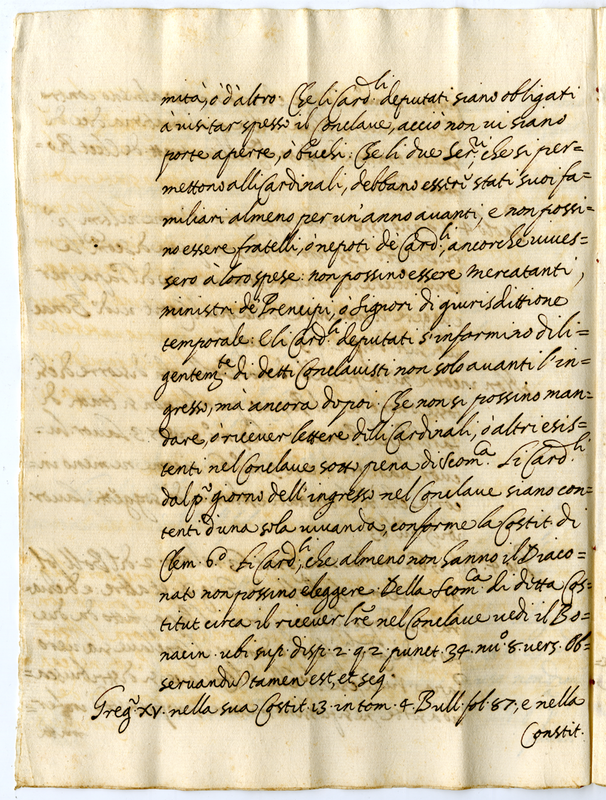 mità, ò d'altro. Che li Card.li deputati siano obligati
à visitar spesso il Conclave, acciò non vi siano
porte aperte, ò buchi. Che li due Ser.ri che si per=
mettono alli Cardinali, debbano essere stati suoi fa=
miliari almeno per un'anno avanti, e non possi=
no essere fratelli, ò nepoti de Card.li, ancorche vives=
sero à loro spese: non possino essere mercatanti,
ministri de Prencipi, ò Signori di giurisdittione
temporale. E li Card.li deputati s'informino dili=
gentem.te di detti Conclavisti non solo avanti l'in=
gresso, ma ancora dopoi. Che non si possino man=
dare, ò ricever lettere dilli Cardinali, ò altri esis=
tenti nel Conclave sotto pena di Scom.ca. Li Card.li
dal p.o giorno dell'ingresso nel Conclave siano con=
tenti d'una sola vivanda, conforme la Costit. di
Clem. 6.o. Li Card.li, che almeno non hanno il Diaco=
nato non possino eleggere. Della Scom.ca di ditta Cos=
titut. circa il ricever l're nel Conclave vedi il Bo=
nacin. ubi sup. disp. 2. q. 2. punct. 34. nu.o 8. vers. Ob=
servandu tamen est, et seq.
Greg. XV. nella sua Costit. 13. in tom. 4. Bull. fol. 87, e nella
Constit.